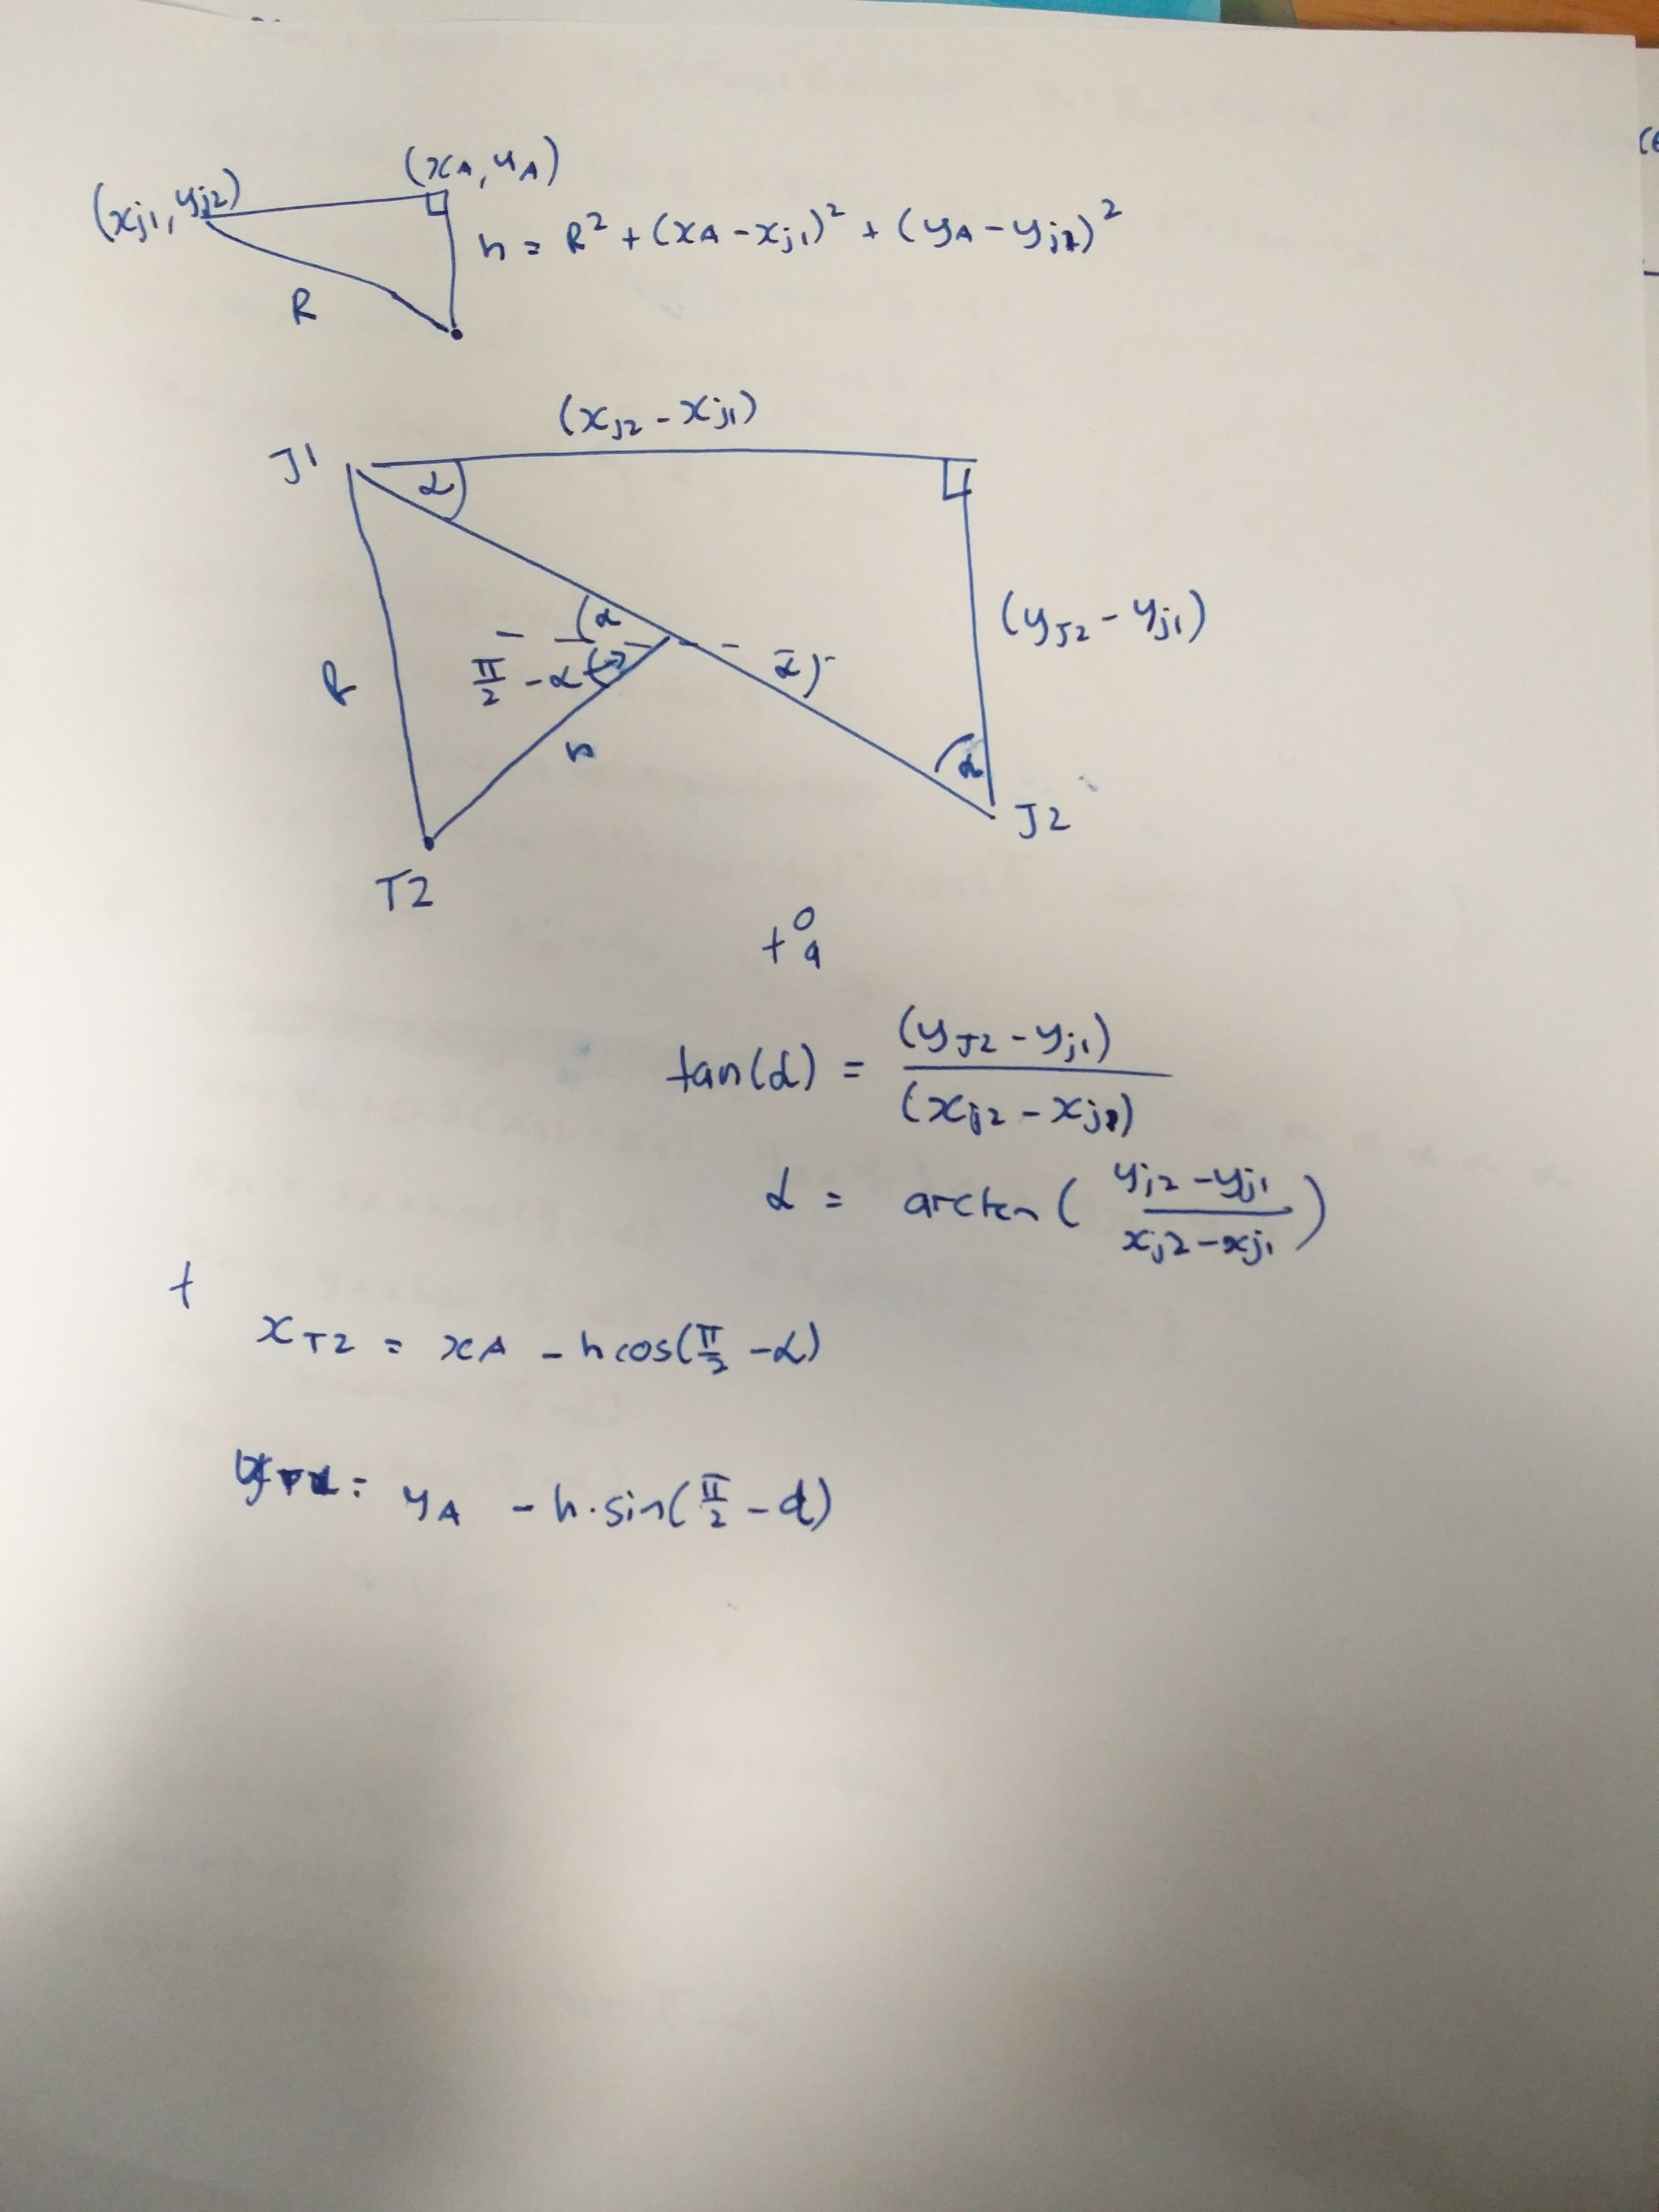 (xA, yA)
(xj1, yj2)
h = R² + (xA - xj1)² + (yA - yj1)²
R
(xJ2 - xj1)
J1
α
(yJ2 - yj1)
α
α
π/2 - α
R
h
α
J2
T2
t o/a
tan(α) = (yJ2 - yj1)/(xj2 - xj1)
α = arctan(yj2 - yj1/xj2 - xj1)
t
xT2 = xA - h cos(π/2 - α)
yT2 = yA - h·sin(π/2 - α)